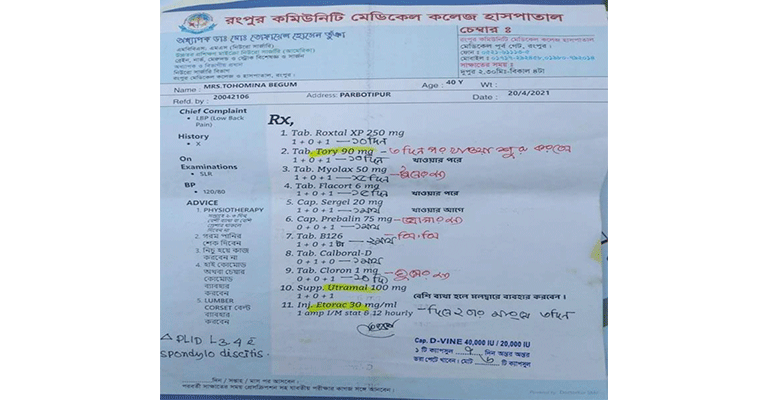 রংপুর কমিউনিটি মেডিকেল কলেজ হাসপাতাল
অধ্যাপক ডাঃ মোঃ তোফায়েল হোসেন ভুঁঞা
এমবিবিএস, এমএস (নিউরো সার্জারি)
নিউরো সার্জারি বিভাগ
রংপুর মেডিকেল কলেজ ও হাসপাতাল, রংপুর।
চেম্বার ঃ
রংপুর কমিউনিটি মেডিকেল কলেজ হাসপাতাল
মেডিকেল পূর্ব গেট, রংপুর।
সাক্ষাতের সময় :
দুপুর ২.৩০মিঃ-বিকাল ৪টা
Name : MRS.TOHOMINA BEGUM Age : 40 Y
Refd. by : 20042106 Address: PARBOTIPUR Wt : 20/4/2021
Chief Complaint
• LBP (Low Back Pain)
History
• X
On Examinations
• SLR
BP
• 120/80
ADVICE
1. PHYSIOTHERAPY
2. গরম পানির
শেক দিবেন
3. নিচু হয়ে কাজ
করবেন না
4. হাই কোমোড
অথবা চেয়ার
কোমোড
ব্যবহার
করবেন
5. LUMBER
CORSET বেল্ট
ব্যবহার
করবেন
△ PLID L3-4 E
spondylo discitis.
Rx,
1. Tab. Roxtal XP 250 mg
1 + 0 + 1 — ১০ দিন
2. Tab. Tory 90 mg - ৩ দিন পর খাওয়া শুরু করবেন
1 + 0 + 1 — ১০ দিন খাওয়ার পরে
3. Tab. Myolax 50 mg
1 + 0 + 1 — ১৫ দিন
4. Tab. Flacort 6 mg
1 + 0 + 1 — ১৫ দিন খাওয়ার পরে
5. Cap. Sergel 20 mg
1 + 0 + 1 — ১মাস খাওয়ার আগে
6. Cap. Prebalin 75 mg
0 + 0 + 1 — ১মাস
7. Tab. B126
1 + 0 + 1 টা — ২মাস
8. Tab. Calboral-D
0 + 1 + 0 — ১মাস
9. Tab. Cloron 1 mg
0 + 0 + 1 — ২০ দিন
10. Supp. Utramal 100 mg
1 + 0 + 1 বেশি ব্যথা হলে মলদ্বারে ব্যবহার করবেন।
11. Inj. Etorac 30 mg/ml
1 amp I/M stat & 12 hourly - দিনে ২ বার মাংসে ৩দিন
Cap. D-VINE 40,000 IU / 20,000 IU
১ টি ক্যাপসুল ৭ দিন অন্তর অন্তর
ভরা পেটে খাবেন। মোট ৬ টি ক্যাপসুল
.....দিন / সপ্তাহ / মাস পর আসবেন।